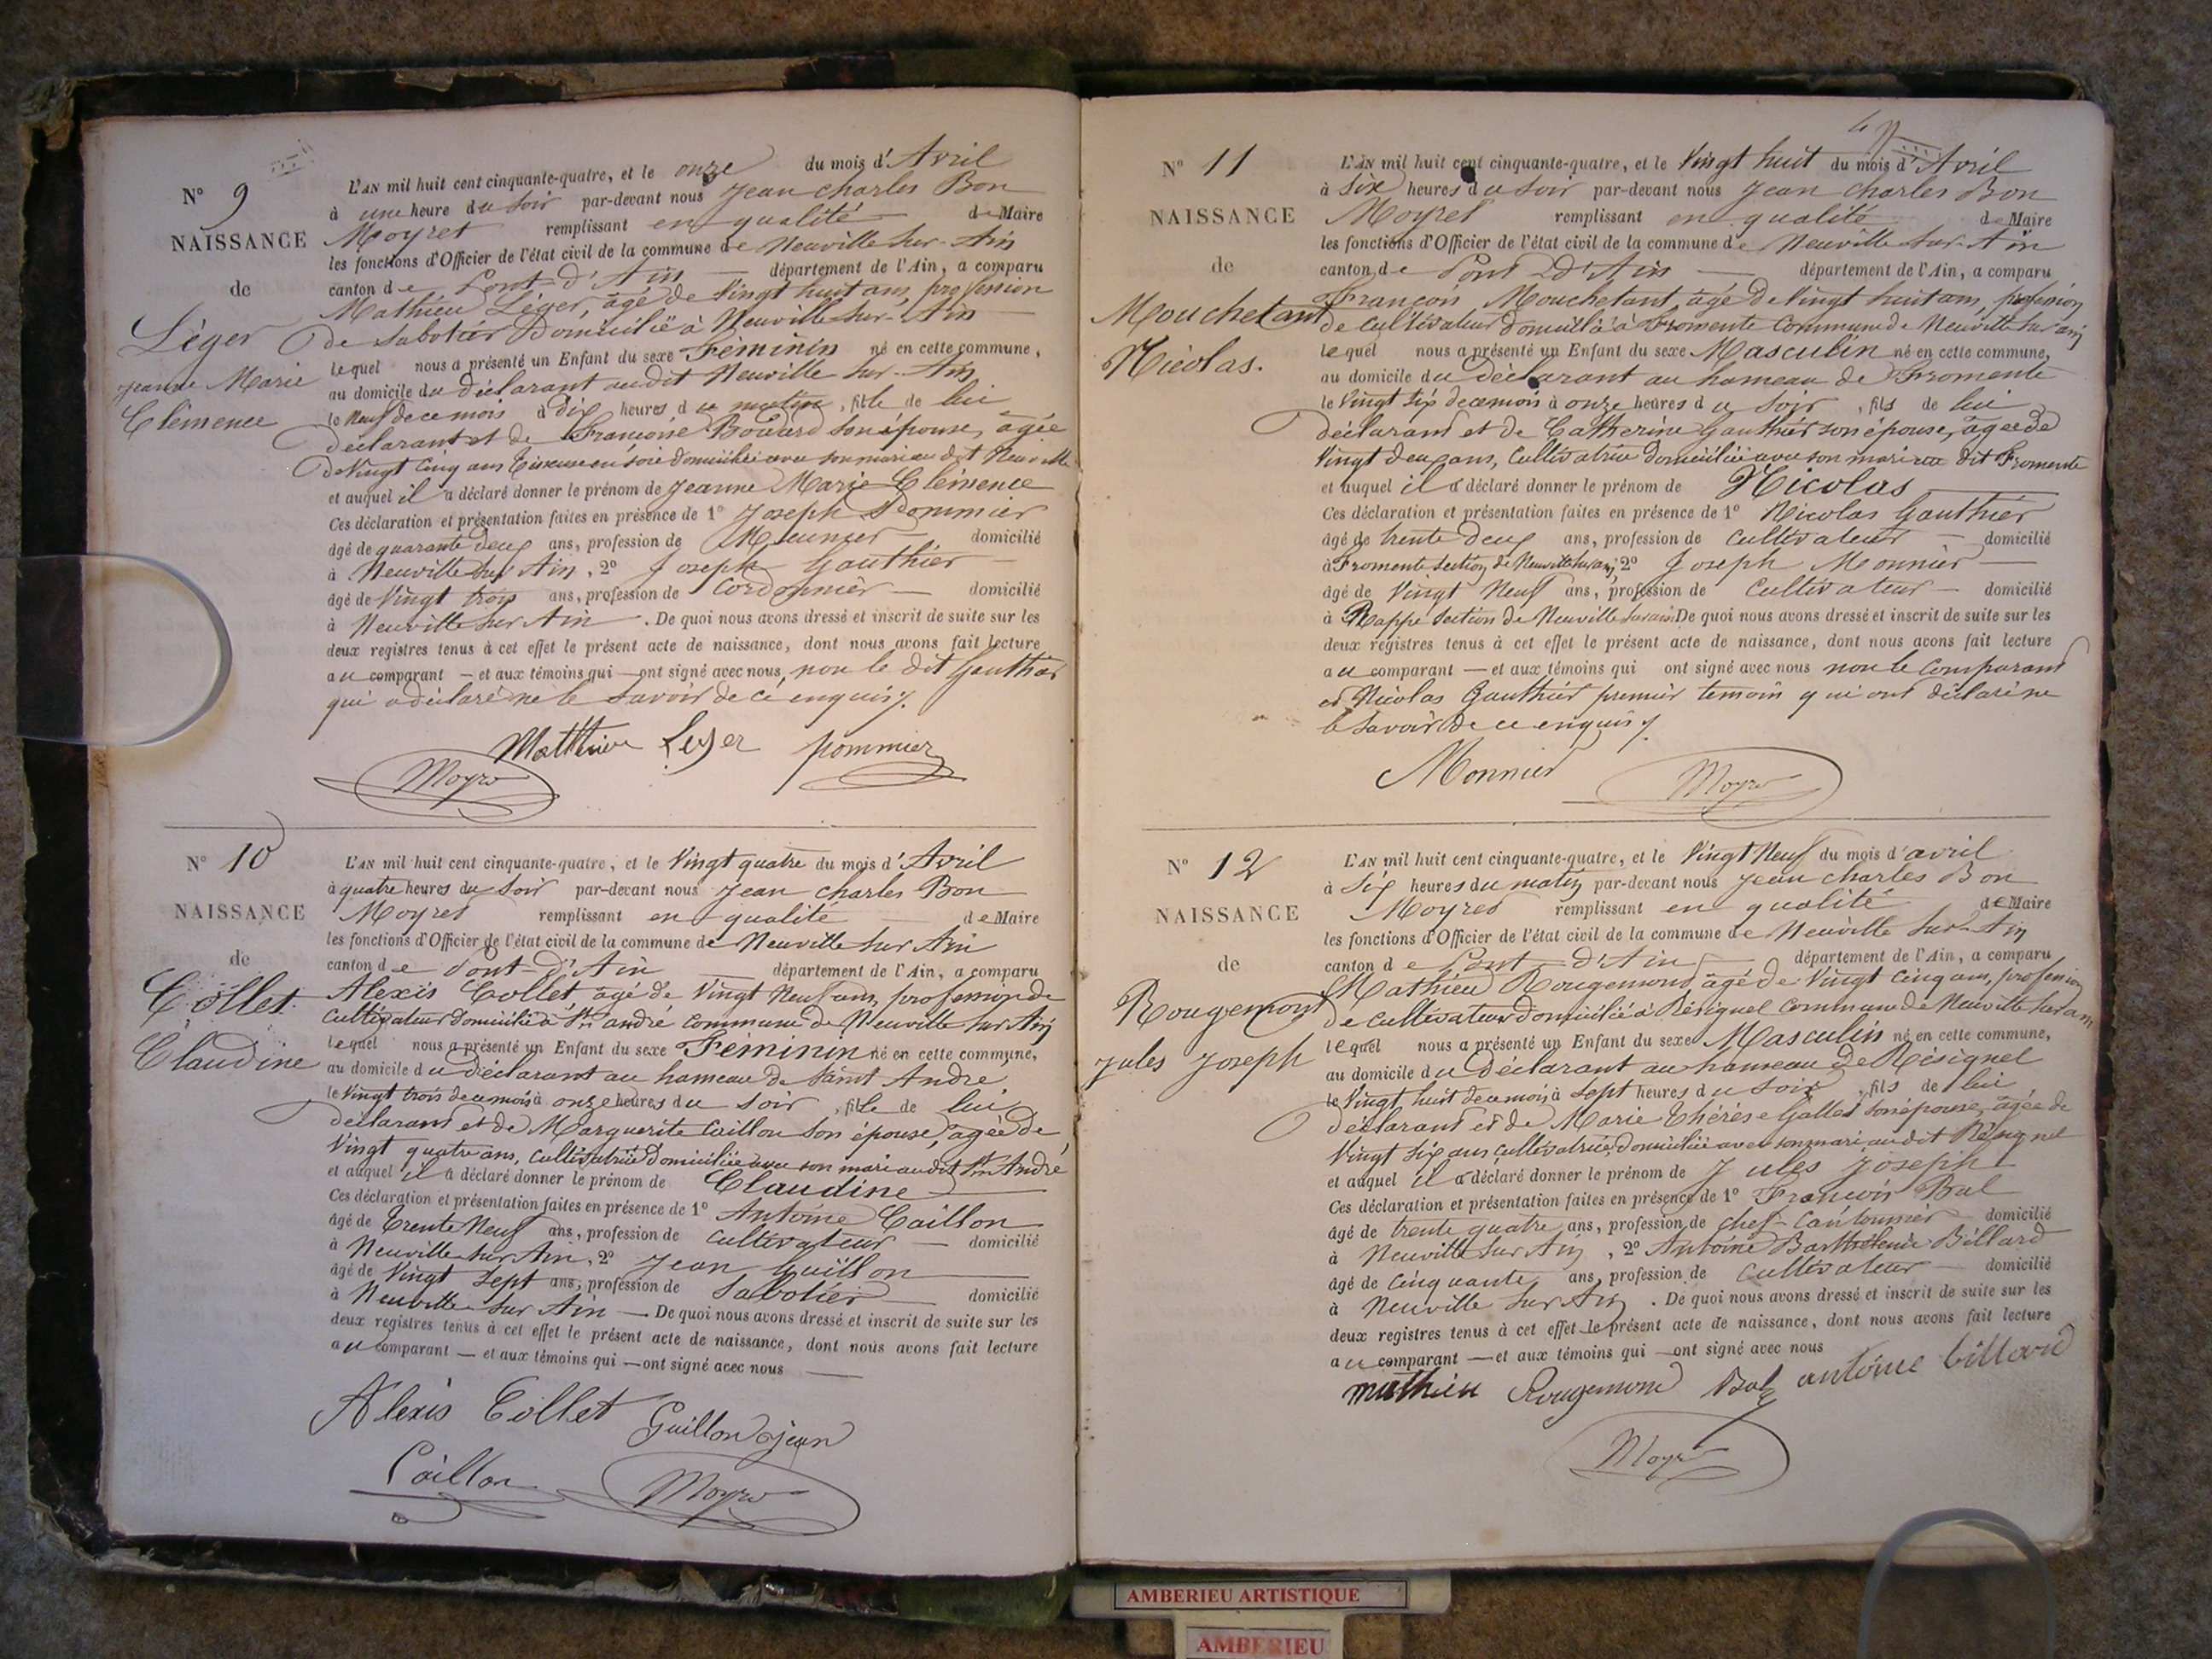 N° 9
NAISSANCE
de
Léger
Jeanne Marie
Clémence
L'AN mil huit cent cinquante-quatre, et le onze du mois d'Avril
à une heure du soir par-devant nous Jean Charles Bon
Moyret remplissant en qualité de Maire
les fonctions d'Officier de l'état civil de la commune de Neuville sur-Ain
canton de Pont-d'Ain département de l'Ain, a comparu
Mathieu Léger, âgé de Vingt huit ans, profession
de Sabotier Domicilié à Neuville sur-Ain
lequel nous a présenté un Enfant du sexe Féminin né en cette commune,
au domicile du Déclarant audit Neuville sur-Ain
le Neuf de ce mois à dix heures du matin, fille de lui
Déclarant et de Françoise Bouvard son épouse, âgée
de Vingt Cinq ans Tisseuse en soie domiciliée avec son mari au dit Neuville
et auquel il a déclaré donner le prénom de Jeanne Marie Clémence
Ces déclaration et présentation faites en présence de 1° Joseph Pommier
âgé de quarante deux ans, profession de Meunier domicilié
à Neuville sur Ain, 2° Joseph Gauthier
âgé de Vingt trois ans, profession de Cordonnier domicilié
à Neuville sur Ain. De quoi nous avons dressé et inscrit de suite sur les
deux registres tenus à cet effet le présent acte de naissance, dont nous avons fait lecture
au comparant — et aux témoins qui — ont signé avec nous non le dit Gauthier
qui a déclaré ne le savoir de ce enquis
Matthieu Leger pommier
Moyret
N° 10
NAISSANCE
de
Collet
Claudine
L'AN mil huit cent cinquante-quatre, et le Vingt quatre du mois d'Avril
à quatre heures du soir par-devant nous Jean Charles Bon
Moyret remplissant en qualité de Maire
les fonctions d'Officier de l'état civil de la commune de Neuville sur Ain
canton de Pont-d'Ain département de l'Ain, a comparu
Alexis Collet âgé de Vingt Neuf ans, profession de
Cultivateur Domicilié à St andré commune de Neuville sur Ain
lequel nous a présenté un Enfant du sexe Féminin né en cette commune,
au domicile du déclarant au hameau de Saint André
le Vingt trois de ce mois à onze heures du soir, fille de lui
déclarant et de Marguerite Caillon son épouse, âgée de
Vingt quatre ans, cultivatrice Domiciliée avec son mari audit St André
et auquel il a déclaré donner le prénom de Claudine
Ces déclaration et présentation faites en présence de 1° Antoine Caillon
âgé de Trente Neuf ans, profession de Cultivateur domicilié
à Neuville sur Ain, 2° Jean Guillon
âgé de Vingt sept ans, profession de Sabotier domicilié
à Neuville sur Ain — De quoi nous avons dressé et inscrit de suite sur les
deux registres tenus à cet effet le présent acte de naissance, dont nous avons fait lecture
au comparant — et aux témoins qui — ont signé avec nous
Alexis Collet Guillon jean
Caillon Moyret
N° 11
NAISSANCE
de
Mouchetant
Nicolas.
L'AN mil huit cent cinquante-quatre, et le Vingt huit du mois d'Avril
à Six heures du soir par-devant nous Jean Charles Bon
Moyret remplissant en qualité de Maire
les fonctions d'Officier de l'état civil de la commune de Neuville sur-Ain
canton de Pont d'Ain département de l'Ain, a comparu
François Mouchetant, âgé de Vingt huit ans, profession
de Cultivateur domicilié à Fromente Commune de Neuville sur ain
lequel nous a présenté un Enfant du sexe Masculin né en cette commune,
au domicile du déclarant au hameau de Fromente
le Vingt six de ce mois à onze heures du soir, fils de lui
déclarant et de Catherine Gauthier son épouse, âgée de
Vingt deux ans, Cultivatrice domiciliée avec son mari au dit Fromente
et auquel il a déclaré donner le prénom de Nicolas
Ces déclaration et présentation faites en présence de 1° Nicolas Gauthier
âgé de trente deux ans, profession de Cultivateur domicilié
à Fromente Section de Neuville sur ain, 2° Joseph Monnier
âgé de Vingt Neuf ans, profession de Cultivateur domicilié
à Rappe Section de Neuville sur ain De quoi nous avons dressé et inscrit de suite sur les
deux registres tenus à cet effet le présent acte de naissance, dont nous avons fait lecture
au comparant — et aux témoins qui ont signé avec nous non le Comparant
et Nicolas Gauthier premier témoin qui ont déclaré ne
le Savoir de ce enquis
Monnier Moyret
N° 12
NAISSANCE
de
Rougemont
Jules Joseph
L'AN mil huit cent cinquante-quatre, et le Vingt Neuf du mois d'avril
à Six heures du matin par-devant nous Jean Charles Bon
Moyret remplissant en qualité de Maire
les fonctions d'Officier de l'état civil de la commune de Neuville sur-Ain
canton de Pont-d'Ain département de l'Ain, a comparu
Mathieu Rougemond, âgé de Vingt Cinq ans, profession
de Cultivateur domicilié à Résignel Commune de Neuville sur ain
lequel nous a présenté un Enfant du sexe Masculin né en cette commune,
au domicile du déclarant au hameau de Résignel
le Vingt huit de ce mois à sept heures du soir, fils de lui
déclarant et de Marie Thérèse Gallet son épouse, âgée de
Vingt Six ans cultivatrice, domiciliée avec son mari audit Résignel
et auquel il a déclaré donner le prénom de Jules Joseph
Ces déclaration et présentation faites en présence de 1° François Bal
âgé de trente quatre ans, profession de chef-Cantonnier domicilié
à Neuville sur Ain, 2° Antoine Barthélemie Billard
âgé de Cinquante ans, profession de Cultivateur domicilié
à Neuville sur Ain. De quoi nous avons dressé et inscrit de suite sur les
deux registres tenus à cet effet le présent acte de naissance, dont nous avons fait lecture
au comparant — et aux témoins qui — ont signé avec nous
mathieu Rougemond Bal antoine billard
Moyret
AMBERIEU ARTISTIQUE
AMBERIEU